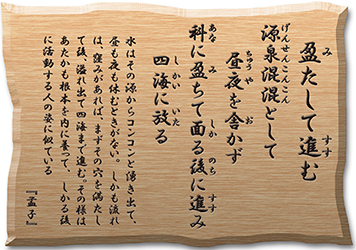 み すす
盈たして進む
げんせんこんこん
源泉混混として
ちゅうや お
昼夜を舎かず
あな み しか のち すす
科に盈ちて面る後に進み
しかい いた
四海に放る
水はその源からコンコンと湧き出て、
昼も夜も休むときがない。しかも流れ
は、窪みがあれば、まずその穴を満たし
て後、溢れ出て四海まで進む。その様は
あたかも根本を内に養って、しかる後
に活動する人の姿に似ている
『孟子』